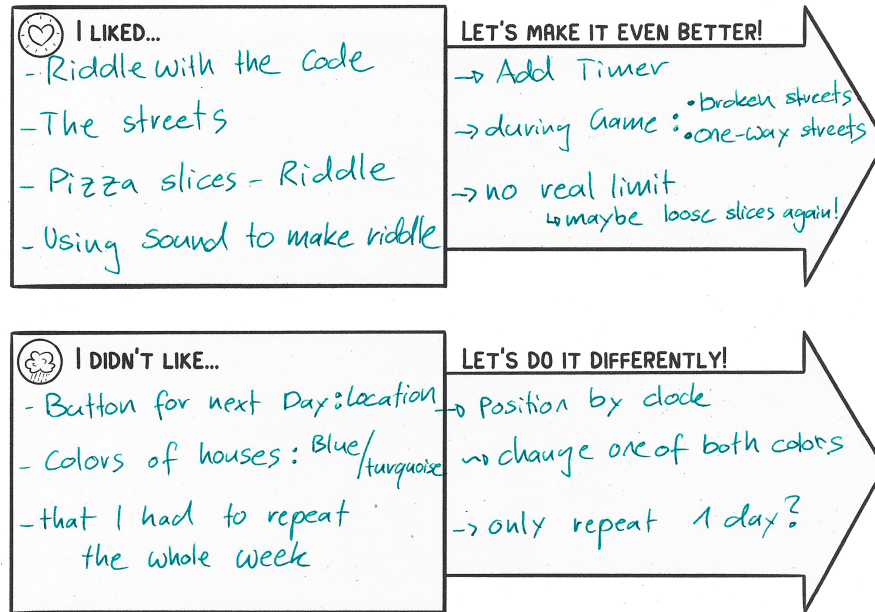 I LIKED...
- Riddle with the Code
- The streets
- Pizza slices - Riddle
- Using sound to make riddle
LET'S MAKE IT EVEN BETTER!
→ Add Timer
→ during Game : • broken streets
• one-way streets
→ no real limit
↳ maybe loose slices again!
I DIDN'T LIKE...
- Button for next Day : location
- Colors of houses : Blue/
turquoise
- that I had to repeat
the whole week
LET'S DO IT DIFFERENTLY!
→ Position by clock
→ change one of both colors
→ only repeat 1 day?